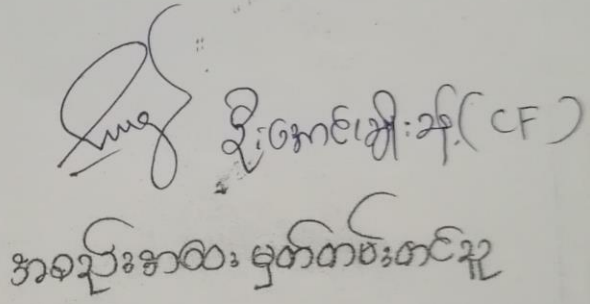 ဦးအောင်မျိုးခန့် (CF)
အစည်းအဝေး မှတ်တမ်းတင်သူ